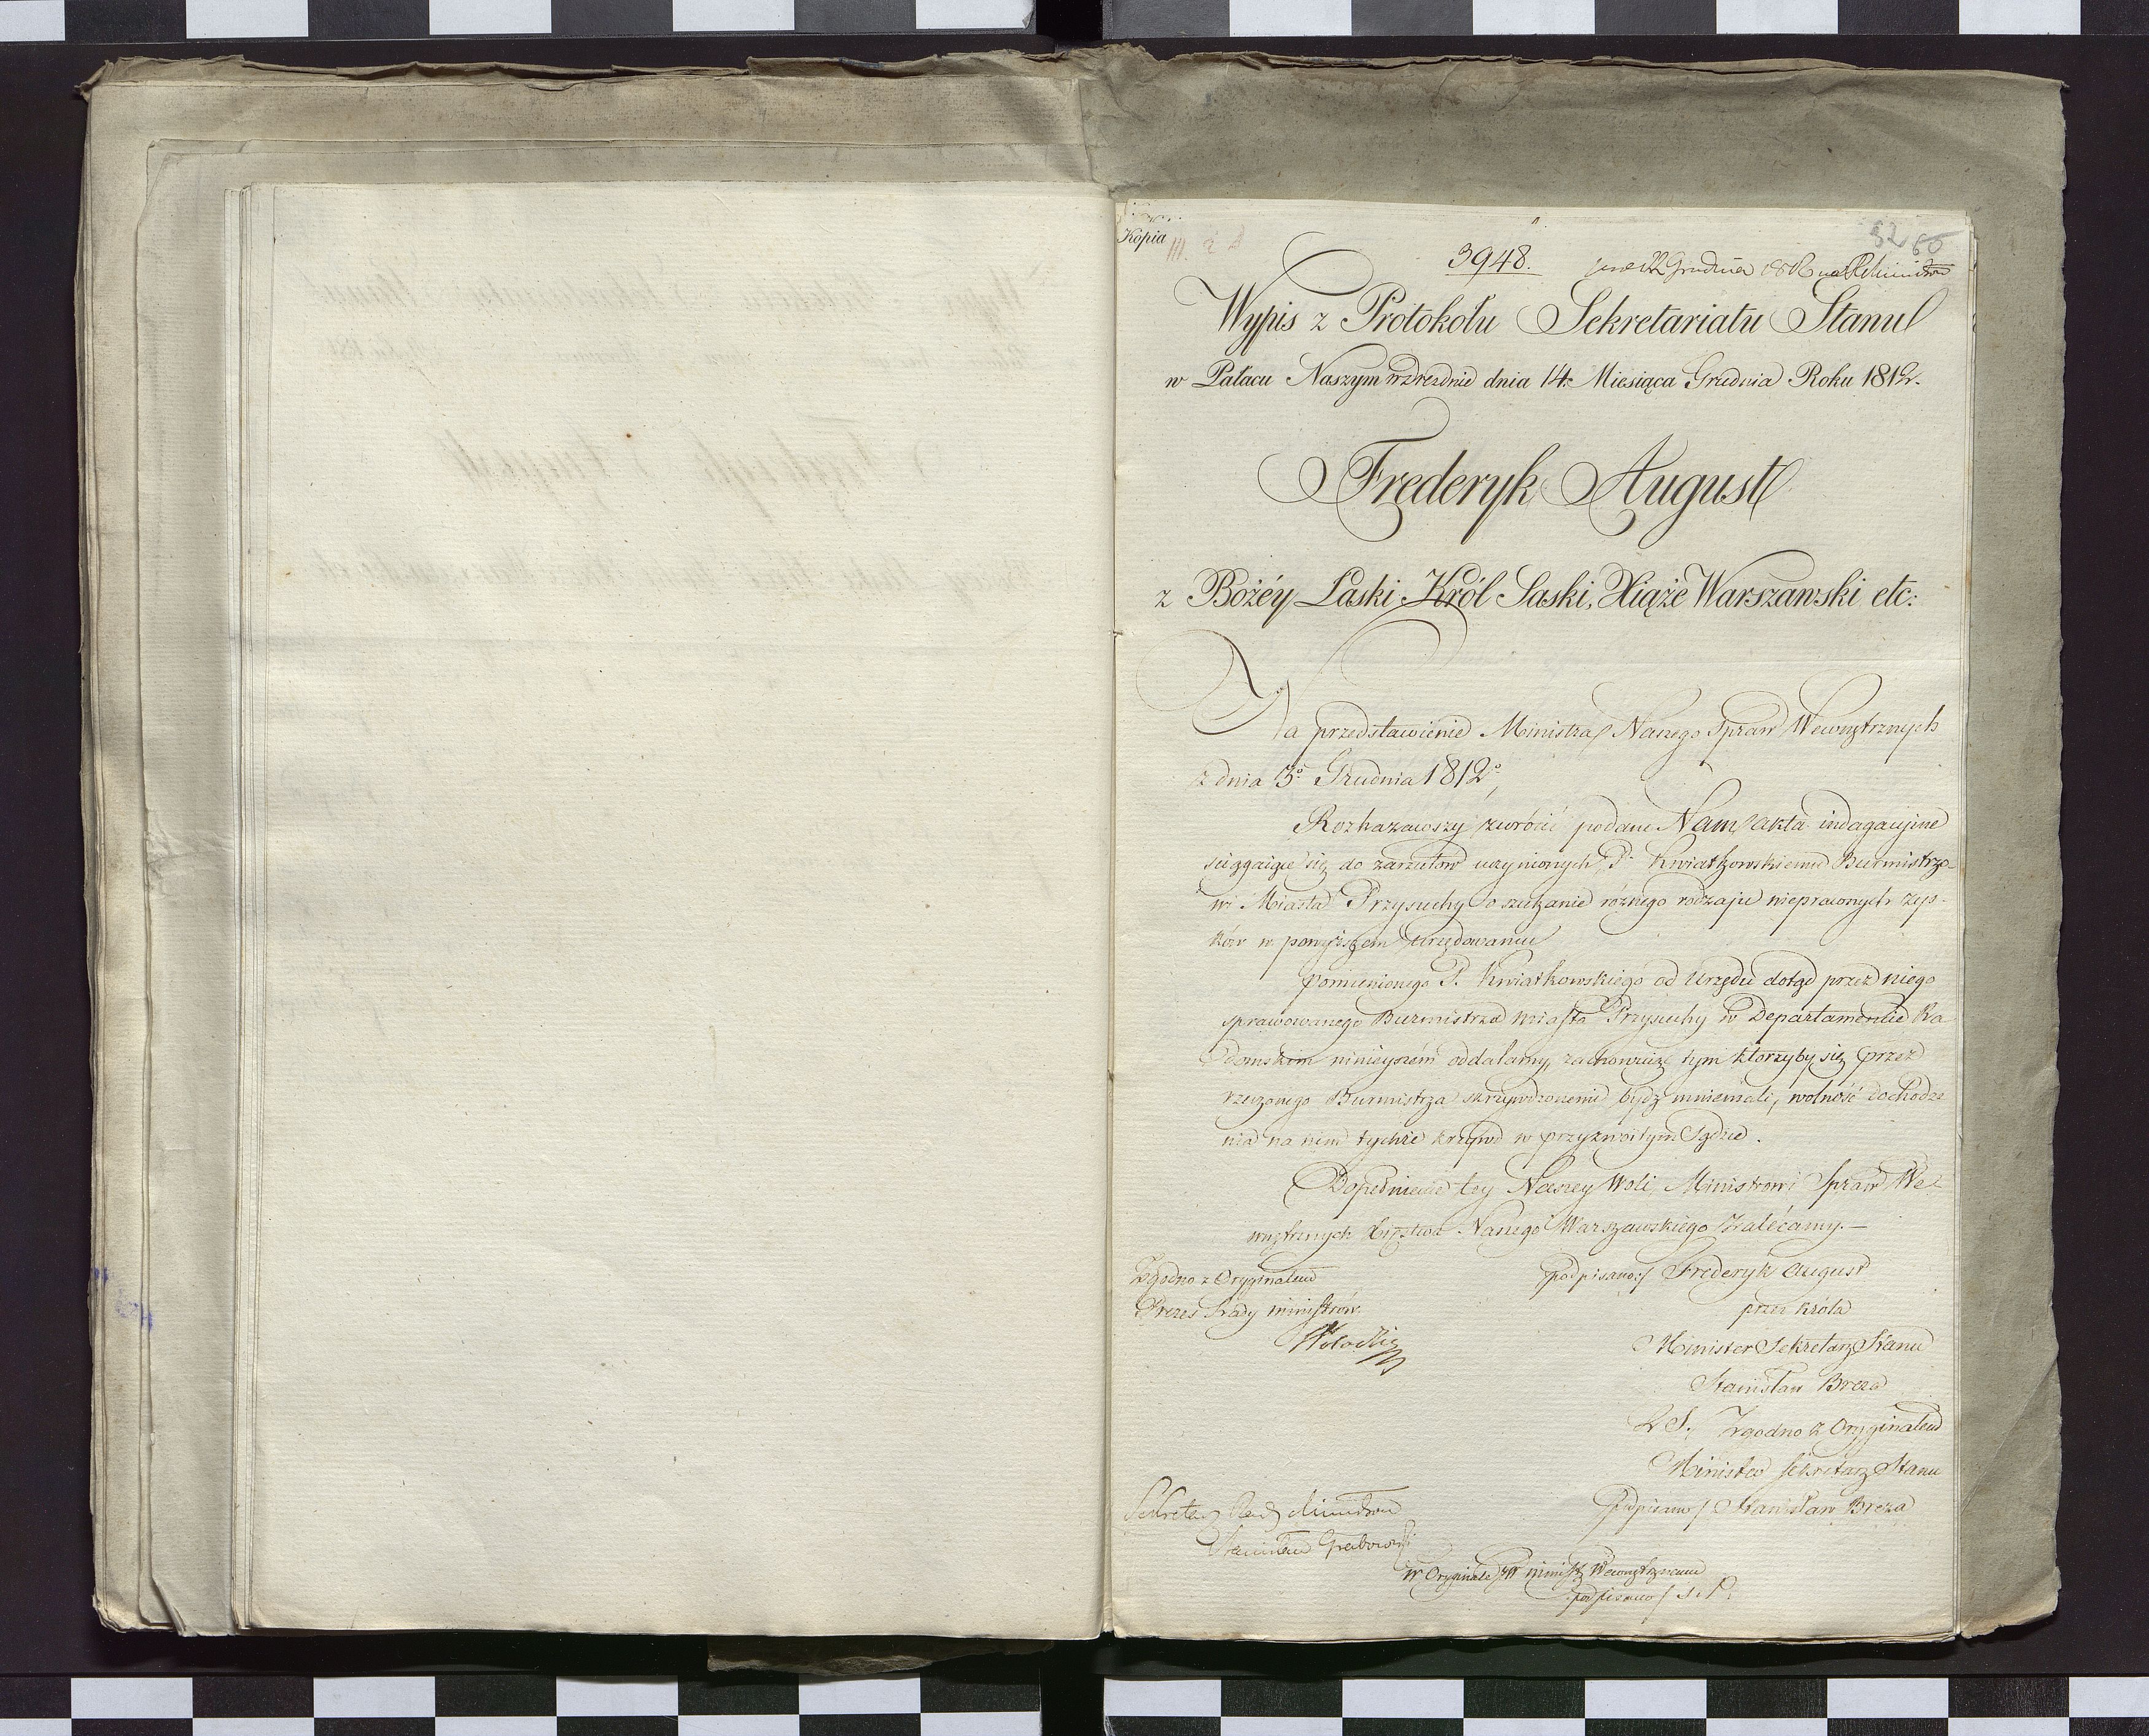 Kopia
3948.
52 66
22 Grudnia 1812
Wypis z Protokołu Sekretariatu Stanu
w Pałacu Naszym w Dreznie dnia 14. Miesiąca Grudnia Roku 1812.
Frederyk August
z Bożéy Łaski Król Saski, Xiąże Warszawski etc:
Na przedstawienie Ministra Naszego Spraw Wewnętrznych
z dnia 3o Grudnia 1812o,
Rozkazawszy zwrócić podane Nam akta indagacyjne
ściągaiące się do zarzutów uczynionych P. Kwiatkowskiemu Burmistrzo-
wi Miasta Przysuchy o szukanie różnego rodzaju nieprawnych zys-
ków w powyższem Urzędowaniu
pomienionego P. Kwiatkowskiego od Urzędu dotąd przez niego
sprawowanego Burmistrza miasta Przysuchy w Departamencie Ra
domskim ninieyszém oddalamy, zachowuiąc tym którzyby się przez
rzeczonego Burmistrza skrzywdzonemi bydź mniemali, wolność dochodze
nia na nim tychże krzywd w przyzwoitym Sądzie.
Dopełnienie tey Naszey Woli Ministrowi Spraw We-
wnętrznych Xięstwa Naszego Warszawskiego zalécamy.—
Zgodno z Oryginałem
Prezes Rady ministrów.
podpisano:/ Frederyk August
przez Króla
Minister Sekretarz Stanu
Stanisław Breza
L. S. Zgodno z Oryginałem
Minister Sekretarz Stanu
Podpisano/ Stanisław Breza
Sekretarz Rady Ministrów
Stanisław Grabowski
w Oryginale Wewnętrznemu
podpisano/